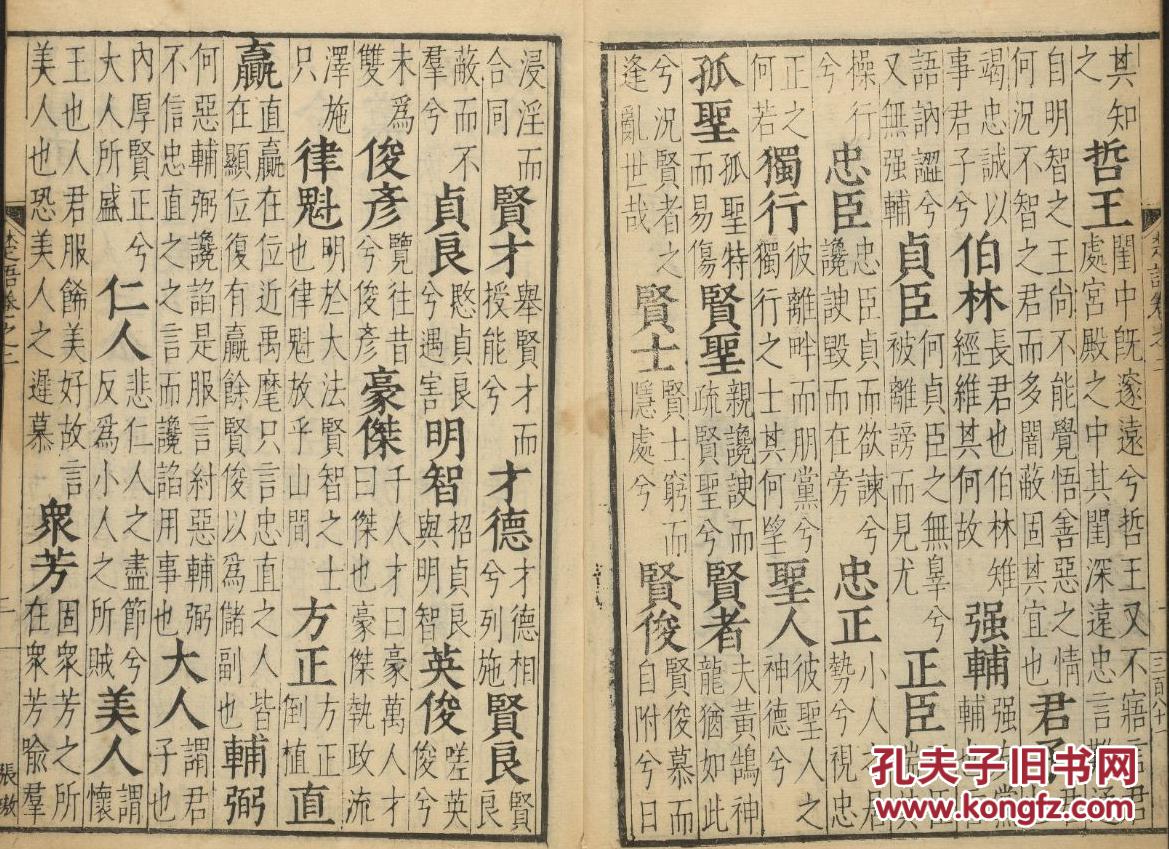 其知之哲王閨中旣邃遠兮哲王又不寤言君處宮殿之中其閨深遠忠言難通
自明智之王尚不能覺悟善惡之情何況不智之君而多闇蔽固其宜也君
竭忠誠以事君子兮伯林長君也伯林雉經維其何故强輔
語訥澀兮又無强輔貞臣何貞臣之無辠兮被離謗而見尤正臣
操行兮忠臣忠臣貞而欲諫兮讒諛毀而在旁忠正小人之君勢兮視忠
正之何若獨行彼離畔而朋黨兮獨行之士其何望聖人彼聖人之神德兮
孤聖孤聖特而易傷賢聖親讒諛而疏賢聖兮賢者夫黃鵠神龍猶如此
兮況賢者之逢亂世哉賢士賢士窮而隱處兮賢俊賢俊慕而自附兮日
浸淫而合同賢才舉賢才而授能兮才德才德相兮列施賢良賢良
蔽而不羣兮貞良愍貞良兮遇害明智招貞良與明智英俊嗟英俊兮
未爲雙俊彥覽往昔兮俊彥豪傑千人才曰豪萬人才曰傑也豪傑執政流
澤施只律魁明於大法賢智之士也律魁放乎山間方正方正倒植直
贏直贏在位近禹麾只言忠直之人皆在顯位復有贏餘賢俊以爲儲副也輔弼
何惡輔弼讒諂是服言紂惡輔弼不信忠直之之言而讒諂用事也大人謂君子也
內厚賢正兮大人所盛仁人悲仁人之盡節兮反爲小人之所賊美人謂懷
王也人君服餙美好故言美人也恐美人之遲慕衆芳固衆芳之所在衆芳喻羣
楚語卷之二
二
張墩
孔夫子旧书网
www.kongfz.com